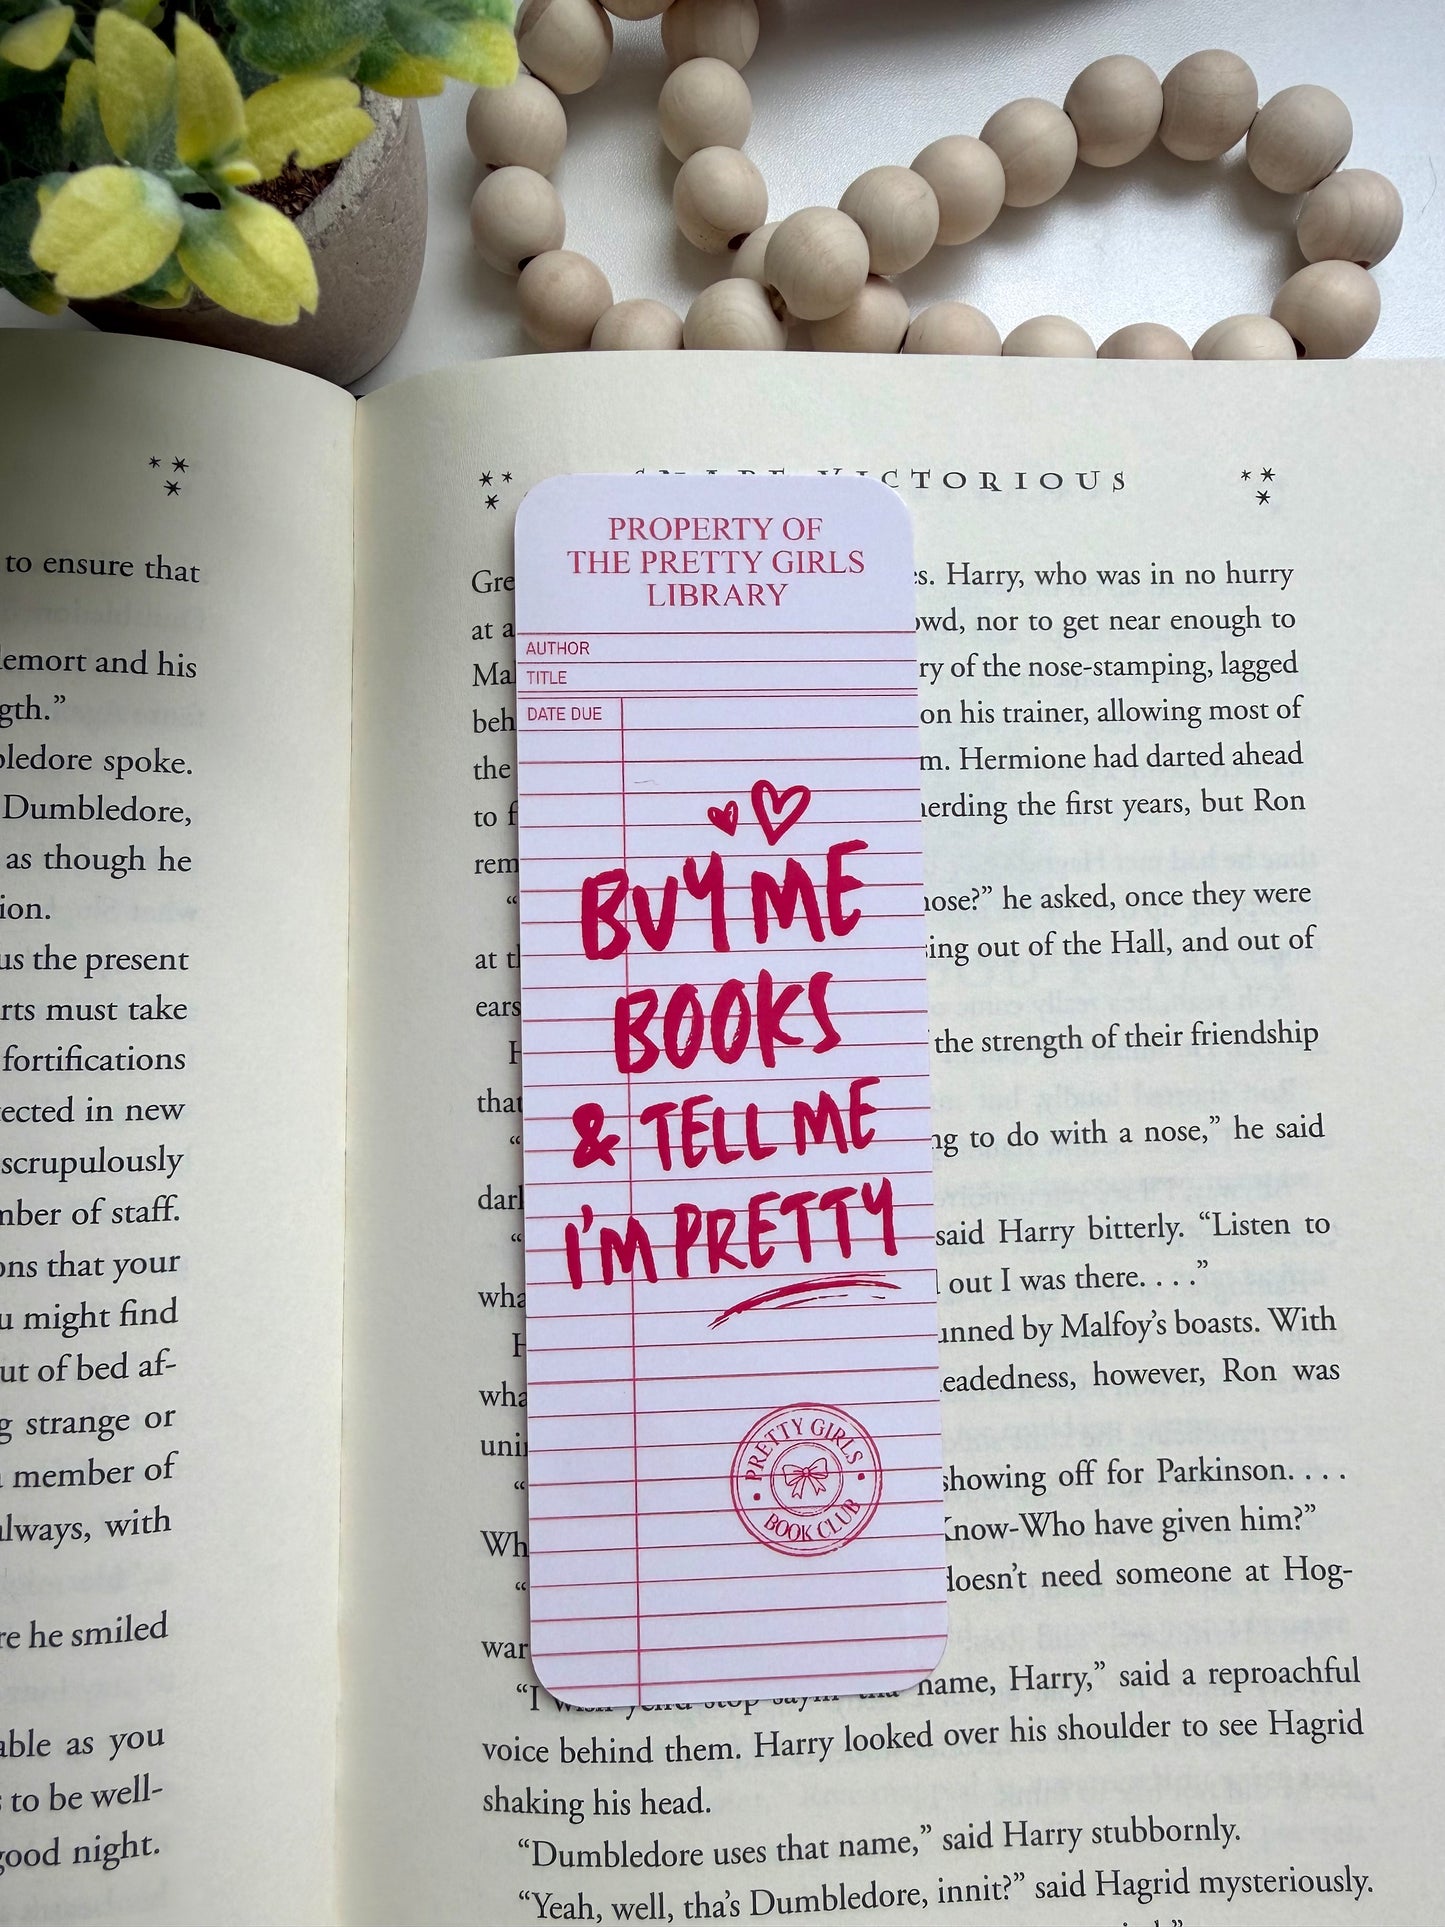 to ensure that
lemort and his
gth.”
bledore spoke.
Dumbledore,
as though he
ion.
us the present
rts must take
fortifications
tected in new
scrupulously
mber of staff.
ons that your
u might find
ut of bed af-
g strange or
member of
always, with
re he smiled
able as you
s to be well-
good night.
SNAPE VICTORIOUS
PROPERTY OF
THE PRETTY GIRLS
LIBRARY
AUTHOR
TITLE
DATE DUE
BUY ME
BOOKS
& TELL ME
I'M PRETTY
PRETTY GIRLS
BOOK CLUB
Gre es. Harry, who was in no hurry
at a owd, nor to get near enough to
Mal ry of the nose-stamping, lagged
beh on his trainer, allowing most of
the m. Hermione had darted ahead
to f herding the first years, but Ron
rem
“ nose?” he asked, once they were
at th sing out of the Hall, and out of
ears
H the strength of their friendship
that
“ ng to do with a nose,” he said
darl
“ said Harry bitterly. “Listen to
wha out I was there. . . .”
H unned by Malfoy’s boasts. With
wha eadedness, however, Ron was
uni
“ showing off for Parkinson. . . .
Wh Know-Who have given him?”
“ doesn’t need someone at Hog-
war
“I wish yeh’d stop sayin’ tha’ name, Harry,” said a reproachful
voice behind them. Harry looked over his shoulder to see Hagrid
shaking his head.
“Dumbledore uses that name,” said Harry stubbornly.
“Yeah, well, tha’s Dumbledore, innit?” said Hagrid mysteriously.